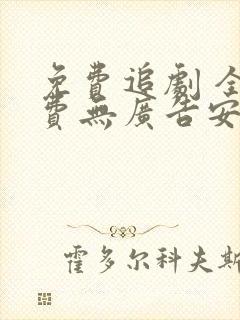 免費追劇 全
費無廣告安
霍多尔科夫斯